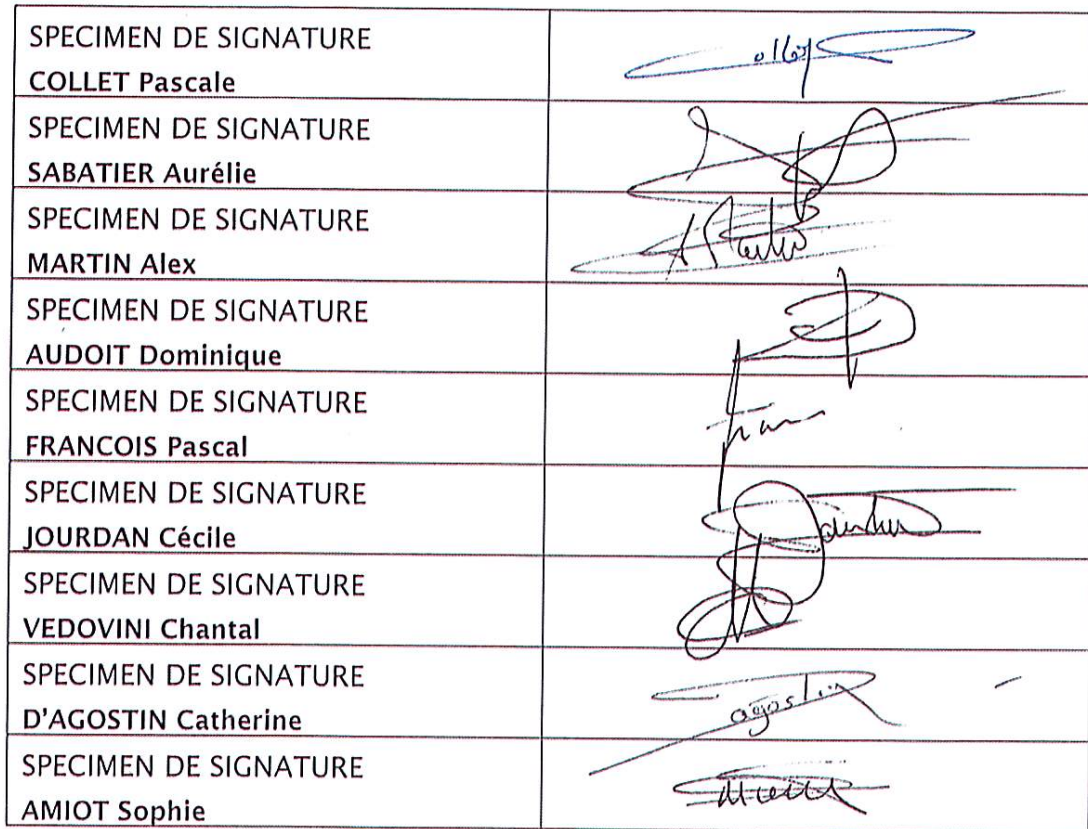 SPECIMEN DE SIGNATURE
COLLET Pascale
SPECIMEN DE SIGNATURE
SABATIER Aurélie
SPECIMEN DE SIGNATURE
MARTIN Alex
SPECIMEN DE SIGNATURE
AUDOIT Dominique
SPECIMEN DE SIGNATURE
FRANCOIS Pascal
SPECIMEN DE SIGNATURE
JOURDAN Cécile
SPECIMEN DE SIGNATURE
VEDOVINI Chantal
SPECIMEN DE SIGNATURE
D'AGOSTIN Catherine
SPECIMEN DE SIGNATURE
AMIOT Sophie